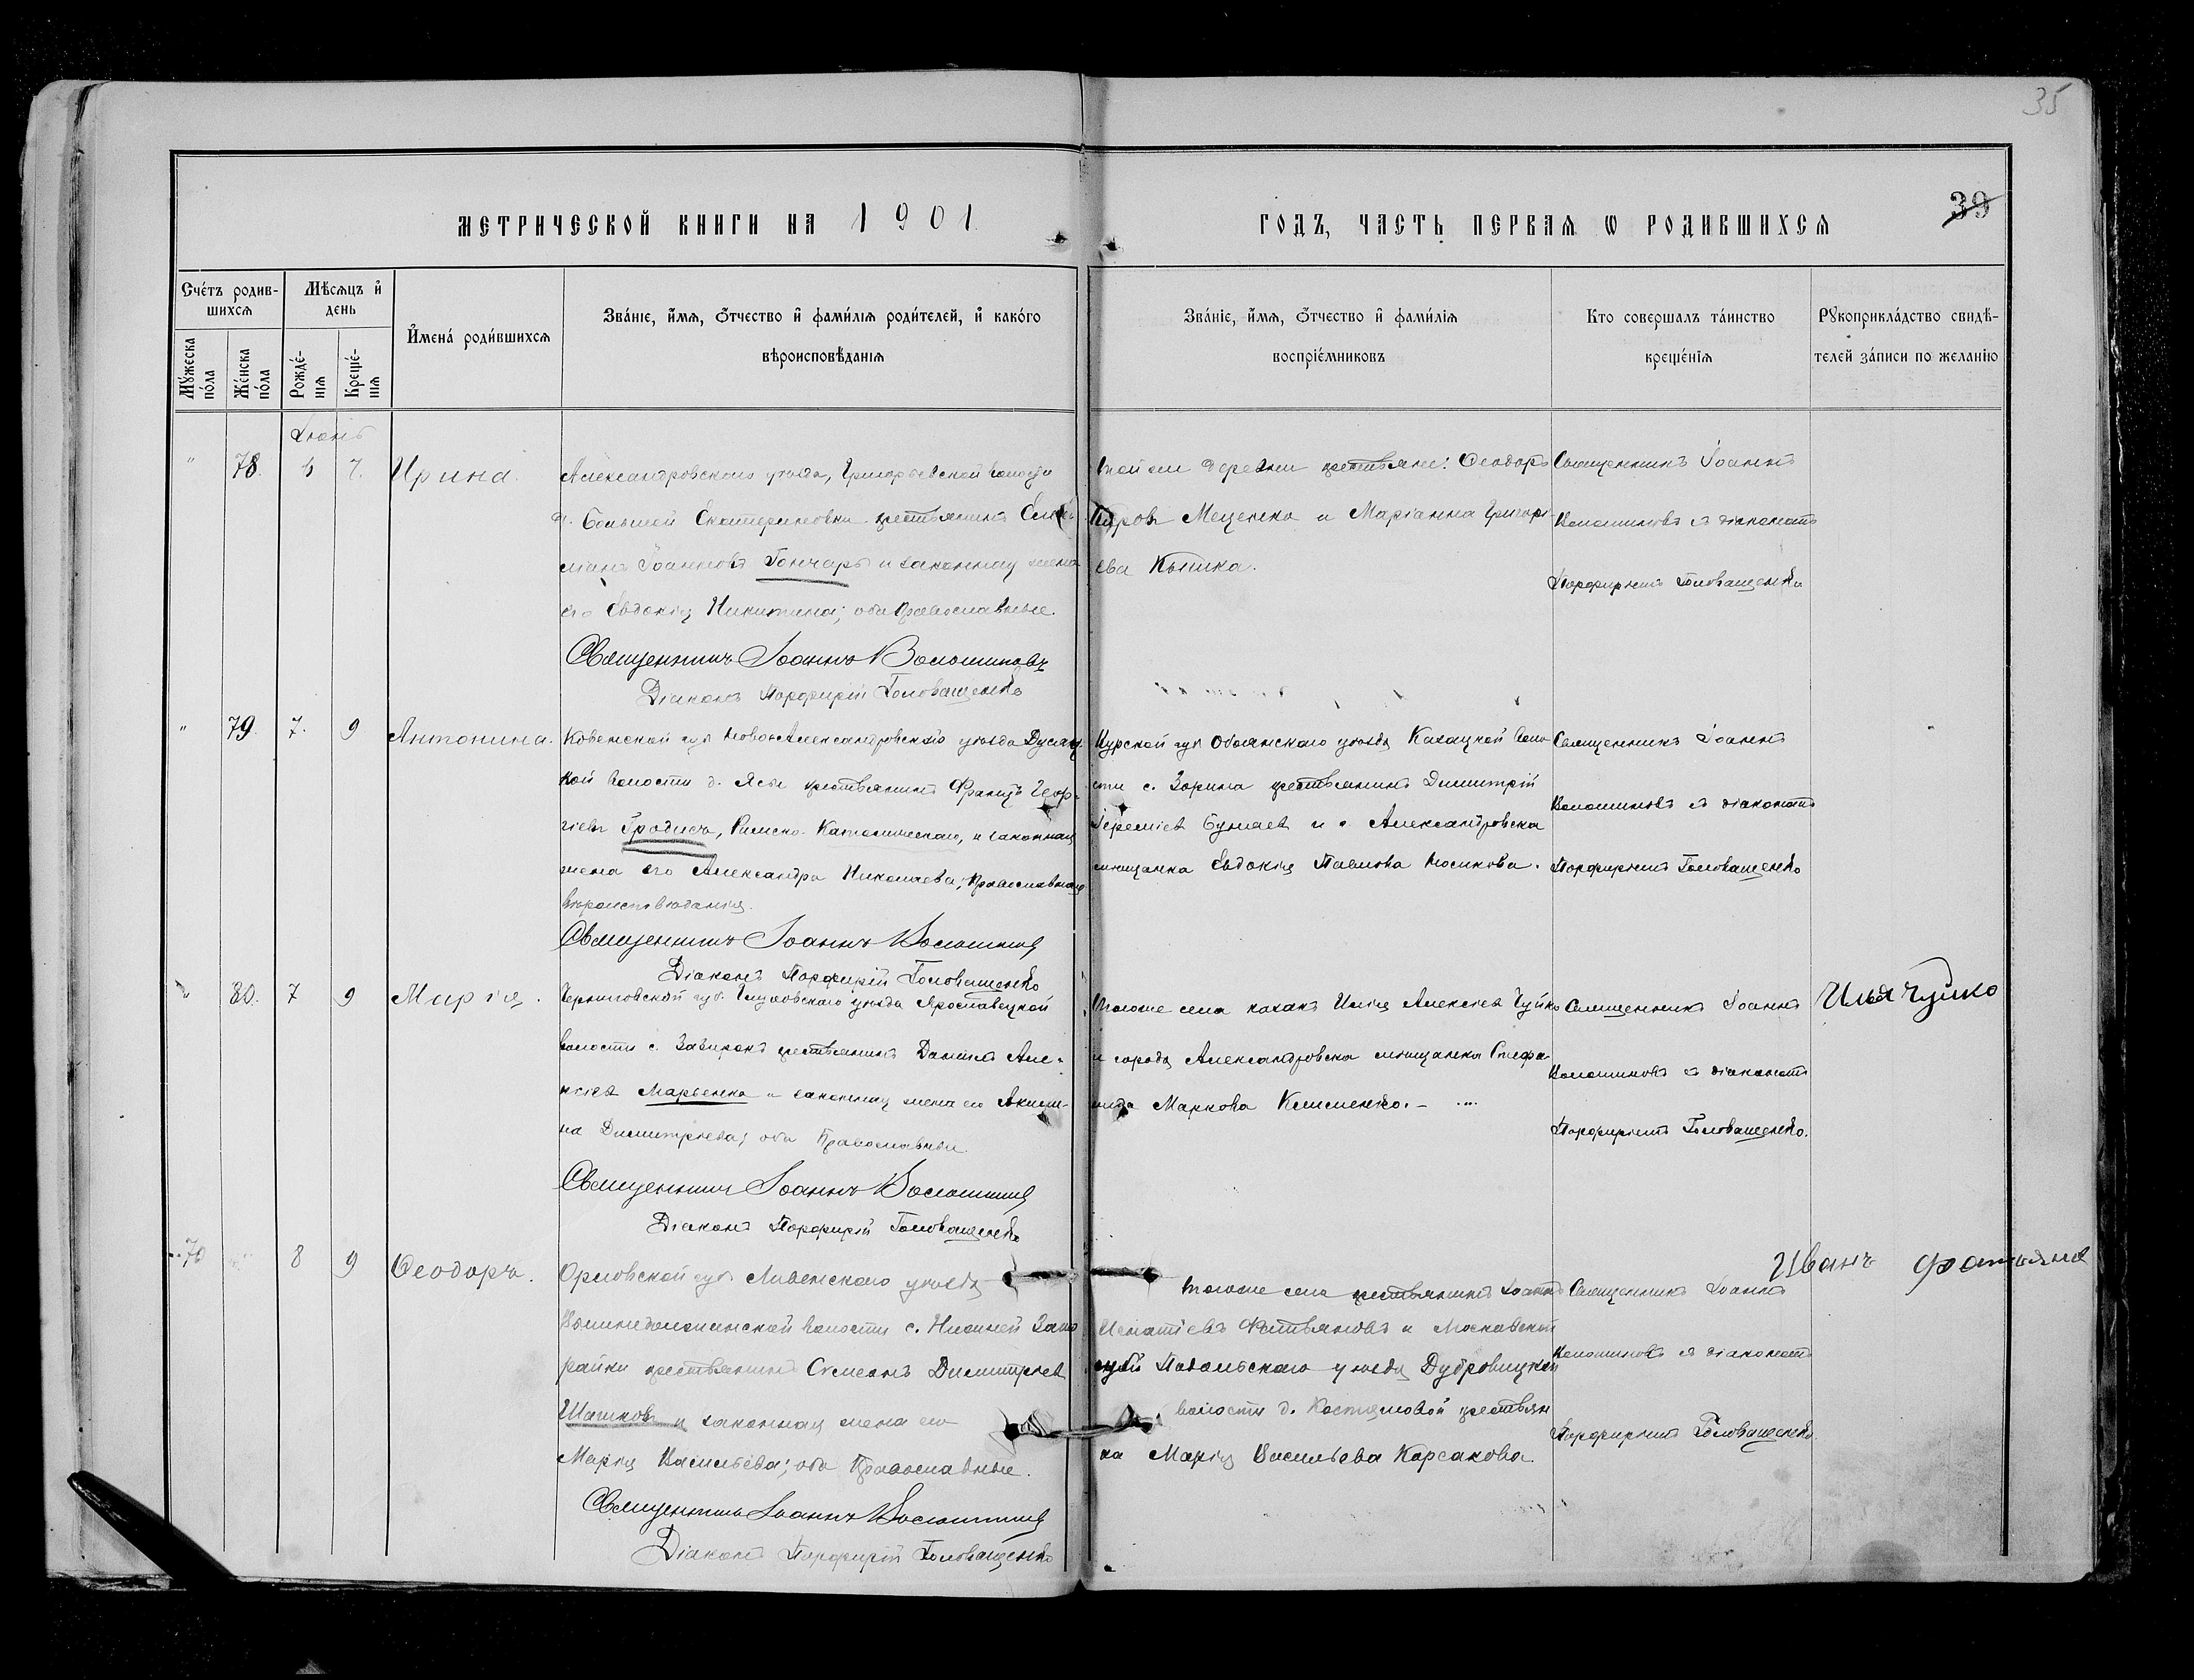 35
39
МЕТРИЧЕСКОЙ КНИГИ НА 1901
ГОДЪ, ЧАСТЬ ПЕРВАЯ Ѡ РОДИВШИХСЯ
Счетъ родив-
шихся
Мужеска пола
Женска пола
Мѣсяцъ и день
Рожде-
нія
Креще-
нія
Имена родившихся
Званіе, имя, отчество и фамилія родителей, и какого
вѣроисповѣданія
Званіе, имя, отчество и фамилія
воспріемниковъ
Кто совершалъ таинство
крещенія
Рукоприкладство свидѣ-
телей записи по желанію
Іюнь
" 78. 7. Ирина.
Александровскаго уѣзда, Григорьевской волости
д. Большой Екатериновки крестьянинъ
Іоанновъ Гончаръ и законная жена
его Евдокія Никитина; оба Православные.
Священникъ Іоаннъ Волошиновъ
Діаконъ Порфирій Головащенко
той же деревни крестьяне: Ѳеодоръ
Меценко и Маріанна Григорі-
ева
Священникъ Іоаннъ
Волошиновъ съ діакономъ
Порфиріемъ Головащенко
" 79. 7. 9 Антонина.
Ковенской губ Ново-Александровскаго уѣзда
кой волости д. крестьянинъ Францъ Геор-
гіевъ Гродисъ, Римско-Католическаго, и законная
жена его Александра Николаева, Православнаго
вѣроисповѣданія.
Священникъ Іоаннъ Волошиновъ
Діаконъ Порфирій Головащенко
Курской губ Обоянскаго уѣзда Казацкой воло-
сти с. Зорина крестьянинъ Димитрій
Іереміевъ Бунаевъ и г. Александровска
мѣщанка Евдокія Павлова Носикова.
Священникъ Іоаннъ
Волошиновъ съ діакономъ
Порфиріемъ Головащенко
" 80. 7 9 Марія.
Черниговской губ. Глуховскаго уѣзда Ярославецкой
волости с. крестьянинъ Даніилъ Але-
ксіевъ Марченко и законная жена его Акили-
на Димитріева; оба Православные.
Священникъ Іоаннъ Волошиновъ
Діаконъ Порфирій Головащенко
того же села казакъ Илія Алексіевъ Чуйко
и города Александровска мѣщанка Стефа-
нида Маркова Клименко.
Священникъ Іоаннъ
Волошиновъ съ діакономъ
Порфиріемъ Головащенко.
Илья Чуйко
70 8 9 Ѳеодоръ.
Орловской губ. Ливенскаго уѣзда
волости с. Нижней
крестьянинъ Симеонъ Димитріевъ
Шашковъ и законная жена его
Марія Васильева; оба Православные.
Священникъ Іоаннъ Волошиновъ
Діаконъ Порфирій Головащенко
того же села крестьянинъ Іоаннъ
Игнатіевъ Фатьяновъ и Московской
губ. Подольскаго уѣзда Дубровицкой
волости д. крестьян
ка Марія Васильева Карсакова.
Священникъ Іоаннъ
Волошиновъ съ діакономъ
Порфиріемъ Головащенко.
Иванъ